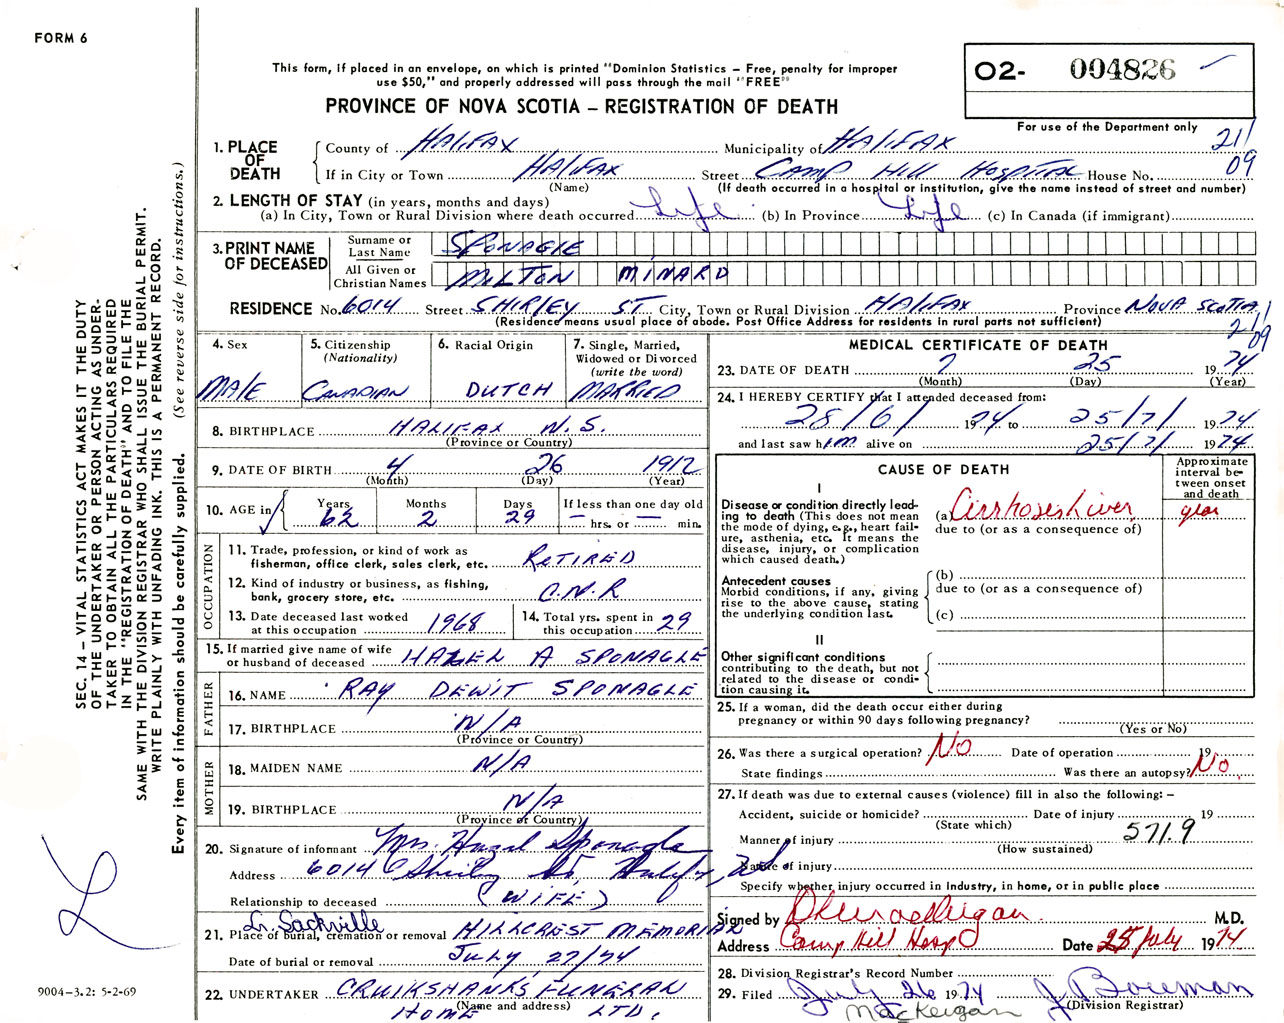 FORM 6
This form, if placed in an envelope, on which is printed "Dominion Statistics – Free, penalty for improper
use $50," and properly addressed will pass through the mail "FREE"
PROVINCE OF NOVA SCOTIA – REGISTRATION OF DEATH
O2- 004826
For use of the Department only
21/
09
1. PLACE OF DEATH
County of HALIFAX Municipality of HALIFAX
If in City or Town HALIFAX Street CAMP HILL HOSPITAL House No.
(Name) (If death occurred in a hospital or institution, give the name instead of street and number)
2. LENGTH OF STAY (in years, months and days)
(a) In City, Town or Rural Division where death occurred Life (b) In Province Life (c) In Canada (if immigrant)
3. PRINT NAME OF DECEASED
Surname or Last Name SPONAGLE
All Given or Christian Names MILTON MINARD
RESIDENCE No. 6014 Street SHIRLEY ST City, Town or Rural Division HALIFAX Province NOVA SCOTIA
(Residence means usual place of abode. Post Office Address for residents in rural parts not sufficient)
21/
09
4. Sex MALE
5. Citizenship (Nationality) CANADIAN
6. Racial Origin DUTCH
7. Single, Married, Widowed or Divorced (write the word) MARRIED
8. BIRTHPLACE HALIFAX N.S.
(Province or Country)
9. DATE OF BIRTH 4 26 1912
(Month) (Day) (Year)
10. AGE in Years 62 Months 2 Days 29 If less than one day old — hrs. or — min.
OCCUPATION
11. Trade, profession, or kind of work as
fisherman, office clerk, sales clerk, etc. RETIRED
12. Kind of industry or business, as fishing,
bank, grocery store, etc. C.N.R
13. Date deceased last worked
at this occupation 1968
14. Total yrs. spent in
this occupation 29
15. If married give name of wife
or husband of deceased HAZEL A SPONAGLE
FATHER
16. NAME RAY DEWIT SPONAGLE
17. BIRTHPLACE N/A
(Province or Country)
MOTHER
18. MAIDEN NAME N/A
19. BIRTHPLACE N/A
(Province or Country)
20. Signature of informant Mrs. Hazel Sponagle
Address 6014 Shirley St, Halifax,
Relationship to deceased (WIFE)
Lr. Sackville
21. Place of burial, cremation or removal HILLCREST MEMORIAL
Date of burial or removal July, 27/74
22. UNDERTAKER CRUIKSHANKS FUNERAL
(Name and address)
HOME LTD.
MEDICAL CERTIFICATE OF DEATH
23. DATE OF DEATH 7 25 1974
(Month) (Day) (Year)
24. I HEREBY CERTIFY that I attended deceased from:
28/6/ 1974 to 25/7/ 1974
and last saw him alive on 25/7/ 1974
CAUSE OF DEATH
Approximate interval between onset and death
I
Disease or condition directly lead-
ing to death (This does not mean
the mode of dying, e.g., heart fail-
ure, asthenia, etc. It means the
disease, injury, or complication
which caused death.)
(a) Cirrhosis Liver year
due to (or as a consequence of)
Antecedent causes
Morbid conditions, if any, giving
rise to the above cause, stating
the underlying condition last.
(b)
due to (or as a consequence of)
(c)
II
Other significant conditions
contributing to the death, but not
related to the disease or condi-
tion causing it.
25. If a woman, did the death occur either during
pregnancy or within 90 days following pregnancy?
(Yes or No)
26. Was there a surgical operation? No Date of operation 19
State findings Was there an autopsy? No.
27. If death was due to external causes (violence) fill in also the following: –
Accident, suicide or homicide? Date of injury 19
(State which)
571.9
Manner of injury
(How sustained)
Nature of injury
Specify whether injury occurred in Industry, in home, or in public place
Signed by M.D.
Address Camp Hill Hosp Date 25 July 1974
28. Division Registrar's Record Number
29. Filed July 26 1974 J. Boreman
(Division Registrar)
MacKeigan
SEC. 14 – VITAL STATISTICS ACT MAKES IT THE DUTY
OF THE UNDERTAKER OR PERSON ACTING AS UNDER-
TAKER TO OBTAIN ALL THE PARTICULARS REQUIRED
IN THE "REGISTRATION OF DEATH" AND TO FILE THE
SAME WITH THE DIVISION REGISTRAR WHO SHALL ISSUE THE BURIAL PERMIT.
WRITE PLAINLY WITH UNFADING INK. THIS IS A PERMANENT RECORD.
Every item of information should be carefully supplied. (See reverse side for instructions.)
9004–3.2: 5-2-69